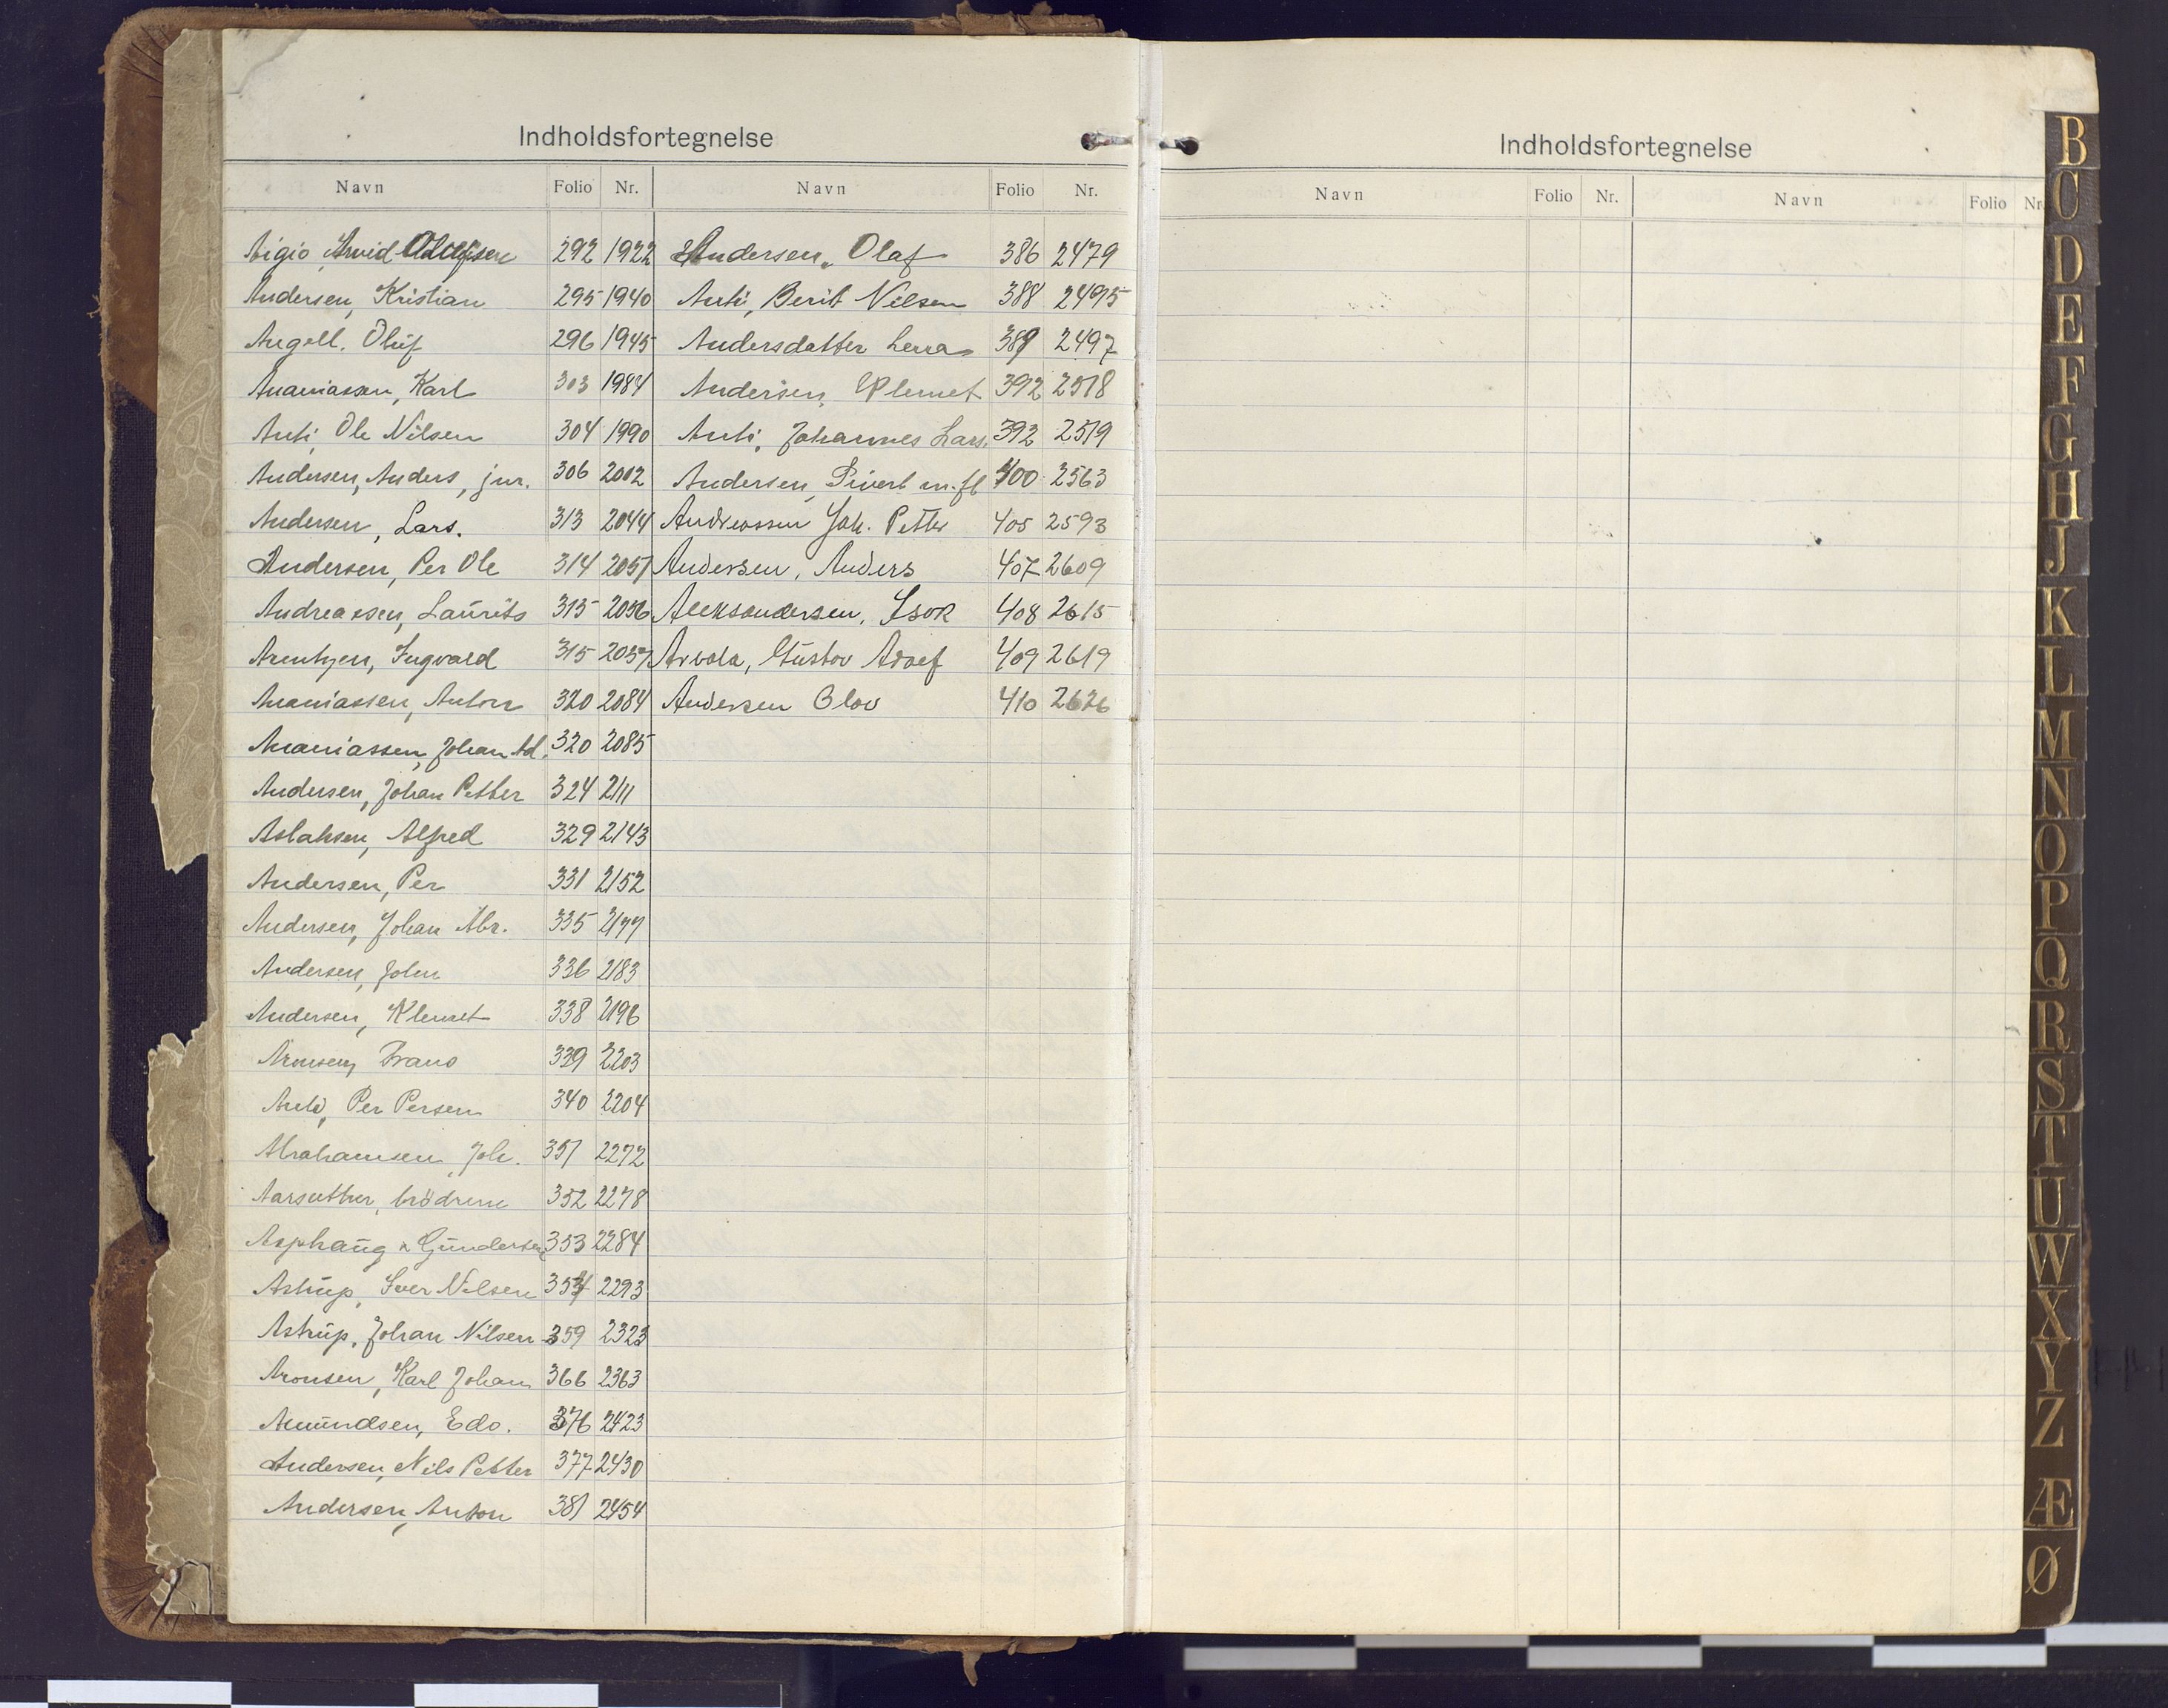 Indholdsfortegnelse
Navn Folio Nr. Navn Folio Nr.
Aigio, Arvid Olufsen 292 1922
Andersen, Kristian 295 1940
Angell. Oluf 296 1945
Ananiassen, Karl 303 1984
Anti, Ole Nilsen 304 1990
Andersen, Anders, jur. 306 2002
Andersen, Lars. 313 2044
Andersen, Per Ole 314 2051
Andreassen, Laurits 315 2056
Arentzen, Ingvald 315 2057
Ananiassen, Anton 320 2084
Ananiassen, Johan Ad. 320 2085
Andersen, Johan Petter 324 2111
Aslaksen, Alfred 329 2143
Andersen, Per 331 2152
Andersen, Johan Abr. 335 2177
Andersen, John 336 2183
Andersen, Klemet 338 2196
Aronsen, 339 2203
Anti, Per Persen 340 2204
Abrahamsen, Joh. 351 2272
brödrene 352 2278
Asphaug & Gundersen 353 2284
Astrup, Iver Nilsen 354 2293
Astrup, Johan Nilsen 359 2323
Aronsen, Karl Johan 366 2363
Amundsen, Edv. 376 2423
Andersen, Nils Petter 377 2430
Andersen, Anton 381 2454
Andersen, Olaf 386 2479
Anti, Berit Nilsen 388 2495
Andersdatter Lena 389 2497
Andersen, Klemet 392 2518
Anti, Johannes Lars. 392 2519
Andersen, Sivert m.fl 400 2563
Andreassen Joh. Petter 405 2593
Andersen, Anders 407 2609
Aleksandersen, Isak 408 2615
Arvola, Gustav Adolf 409 2619
Andersen Olav 410 2626
Indholdsfortegnelse
Navn Folio Nr. Navn Folio Nr.
B
C
D
E
F
G
H
J
K
L
M
N
O
P
Q
R
S
T
U
W
X
Y
Z
Æ
Ø